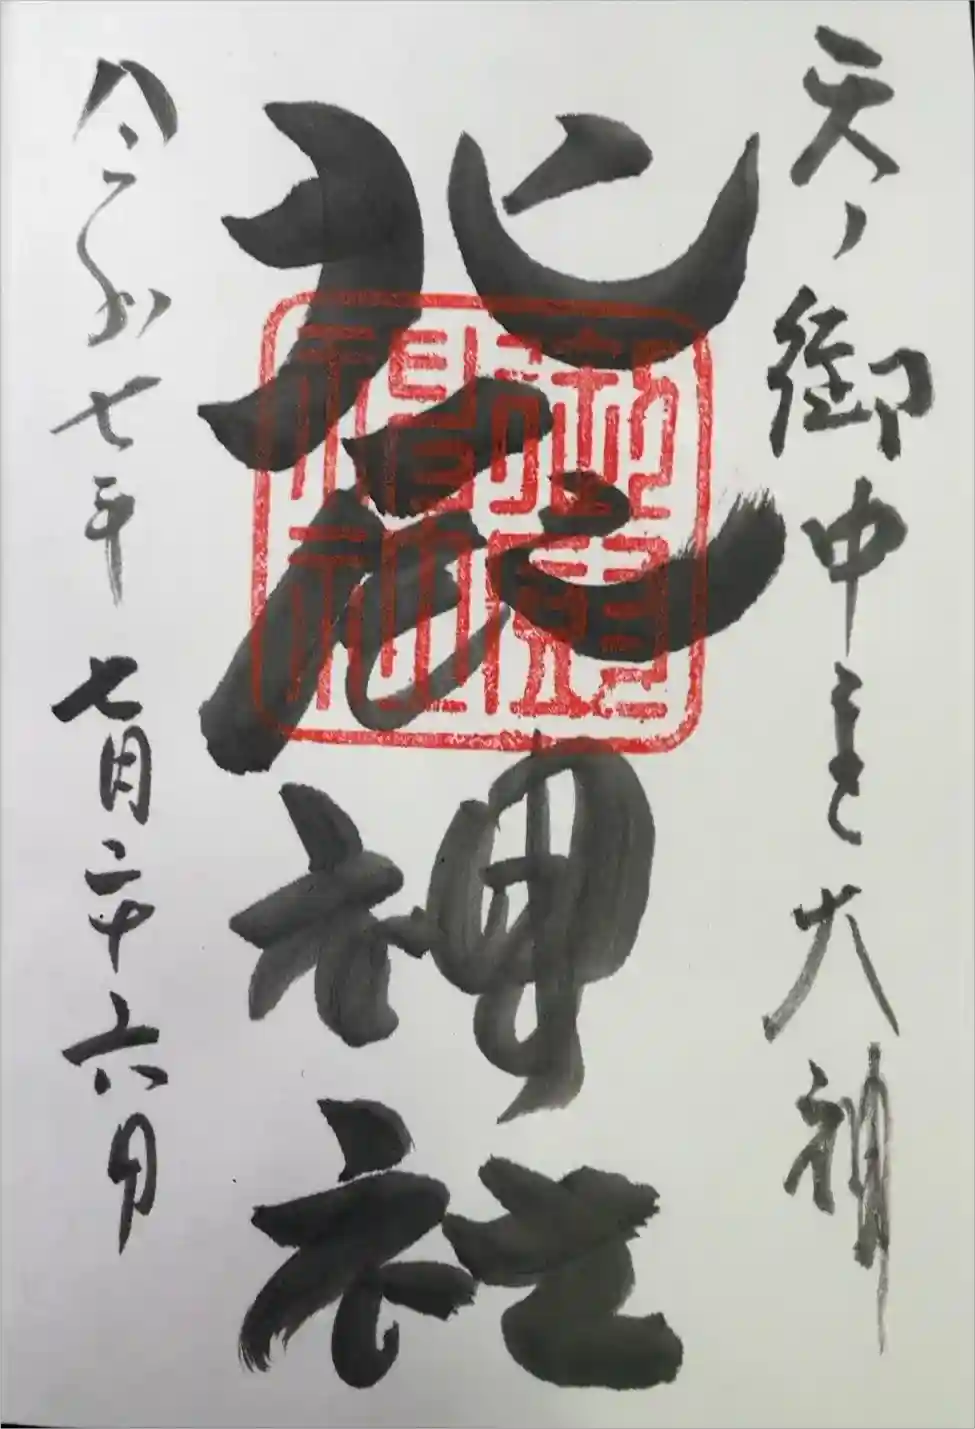 天ノ御中主之大神
北辰神社
令和七年七月二十六日